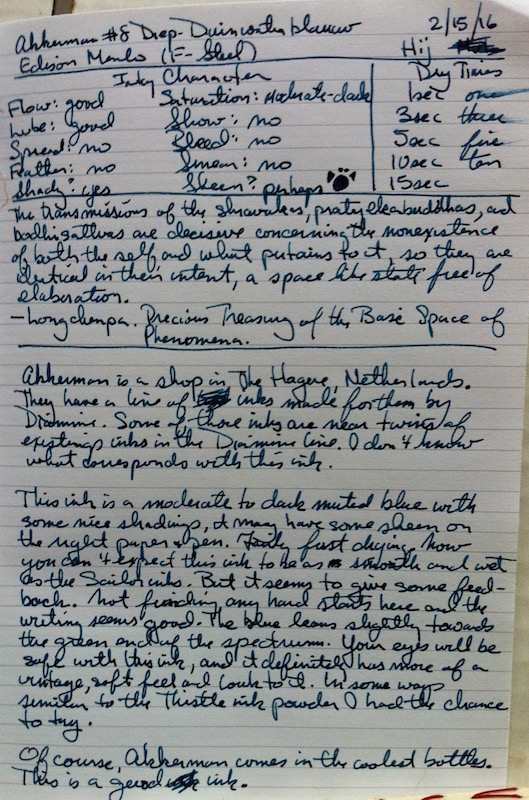 Akkerman #8 Diep-Duinwaterblauw 2/15/16
Edison Menlo (F-Steel) Hij
Inky Character Dry Times
Flow: good Saturation: moderate-dark 1sec one
Lube: good Show: no 3sec three
Spread: no Bleed: no 5sec five
Feather: no Smear: no 10sec ten
Shady?: yes Sheen? perhaps 15sec
The transmissions of the shravakas, pratyekabuddhas, and
bodhisattvas are decisive concerning the nonexistence
of both the self and what pertains to it, so they are
identical in their intent, a space like state free of
elaboration.
—Longchenpa. Precious Treasury of the Base Space of
Phenomena.
Akkerman is a shop in The Hague, Netherlands.
They have a line of inks made for them by
Diamine. Some of those inks are near twins of
existings inks in the Diamine line. I don't know
what corresponds with this ink.
This ink is a moderate to dark muted blue with
some nice shadings, it may have some sheen on
the right paper & pen. Fairly fast drying. Now
you can't expect this ink to be as smooth and wet
as the Sailor inks. But it seems to give some feed-
back. Not finding any hard starts here and the
writing seems good. The blue leans slightly towards
the green end of the spectrum. Your eyes will be
safe with this ink, and it definitely has more of a
vintage, soft feel and look to it. In some ways
similar to the Thistle ink powder I had the chance
to try.
Of course, Akkerman comes in the coolest bottles.
This is a good ink.